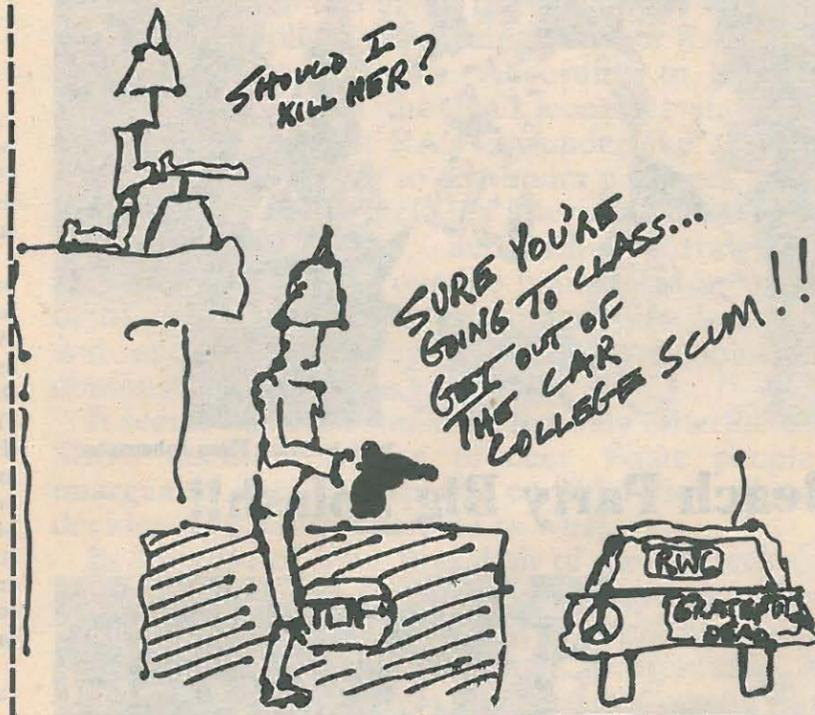 SHOULD I
KILL HER?
SURE YOU'RE
GOING TO CLASS...
GET OUT OF
THE CAR
COLLEGE SCUM!!
RWC
GRATEFUL
DEAD